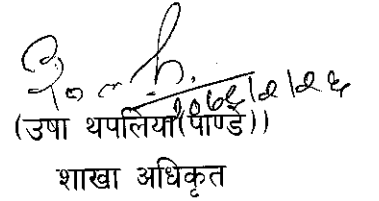 २०७६।२।२६
(उषा थपलिया(पाण्डे))
शाखा अधिकृत